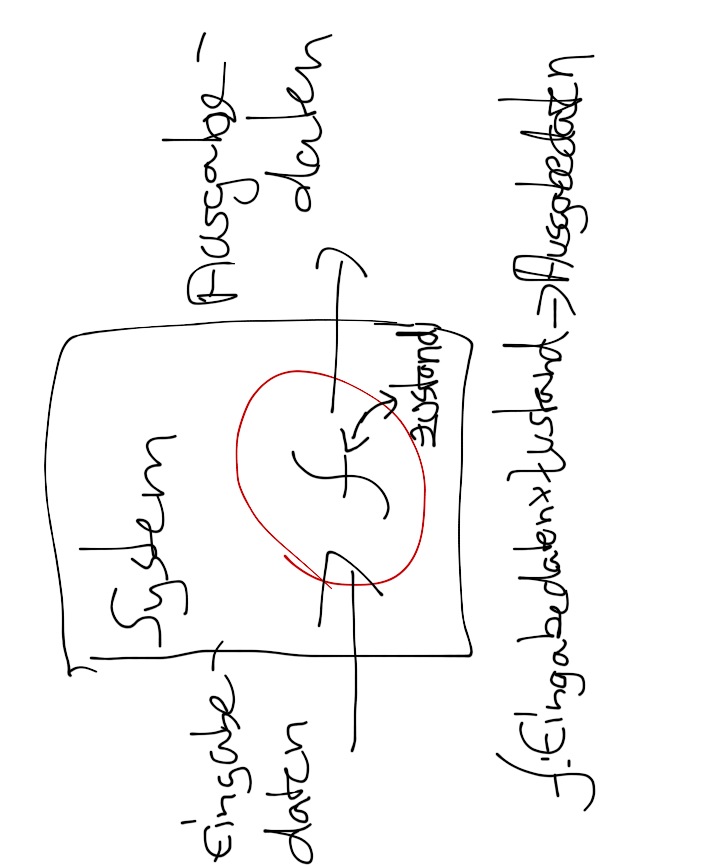 Eingabe-
daten
System
f
Zustand
Ausgabe-
daten
f: Eingabedaten x Zustand → Ausgabedaten